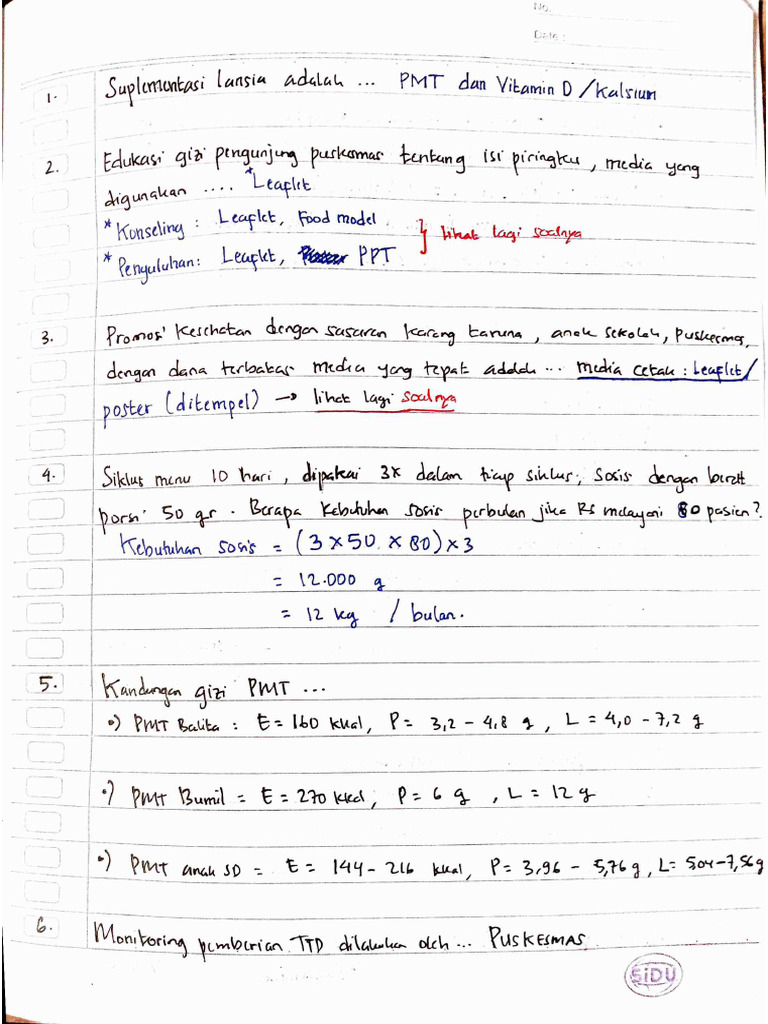 No.
Date:
1. Suplementasi lansia adalah ... PMT dan Vitamin D / Kalsium
2. Edukasi gizi pengunjung puskesmas tentang isi piringku, media yang
digunakan .... * Leaflet
* Konseling : Leaflet, Food model
} lihat lagi soalnya
* Penyuluhan : Leaflet, PPT
3. Promosi kesehatan dengan sasaran karang taruna, anak sekolah, puskesmas,
dengan dana terbatas media yang tepat adalah ... media cetak : Leaflet/
poster (ditempel) → lihat lagi soalnya
4. Siklus menu 10 hari, dipakai 3x dalam tiap siklus, sosis dengan berat
porsi 50 gr. Berapa kebutuhan sosis perbulan jika RS melayani 80 pasien?
Kebutuhan sosis = (3 x 50 x 80) x 3
= 12.000 g
= 12 kg / bulan.
5. Kandungan gizi PMT ...
•) PMT Balita : E = 160 kkal, P = 3,2 - 4,8 g, L = 4,0 - 7,2 g
•) PMT Bumil = E = 270 kkal, P = 6 g, L = 12 g
•) PMT anak SD = E = 144 - 216 kkal, P = 3,96 - 5,76 g, L = 5,04 - 7,56 g
6. Monitoring pemberian TTD dilakukan oleh ... PUSKESMAS
SiDU